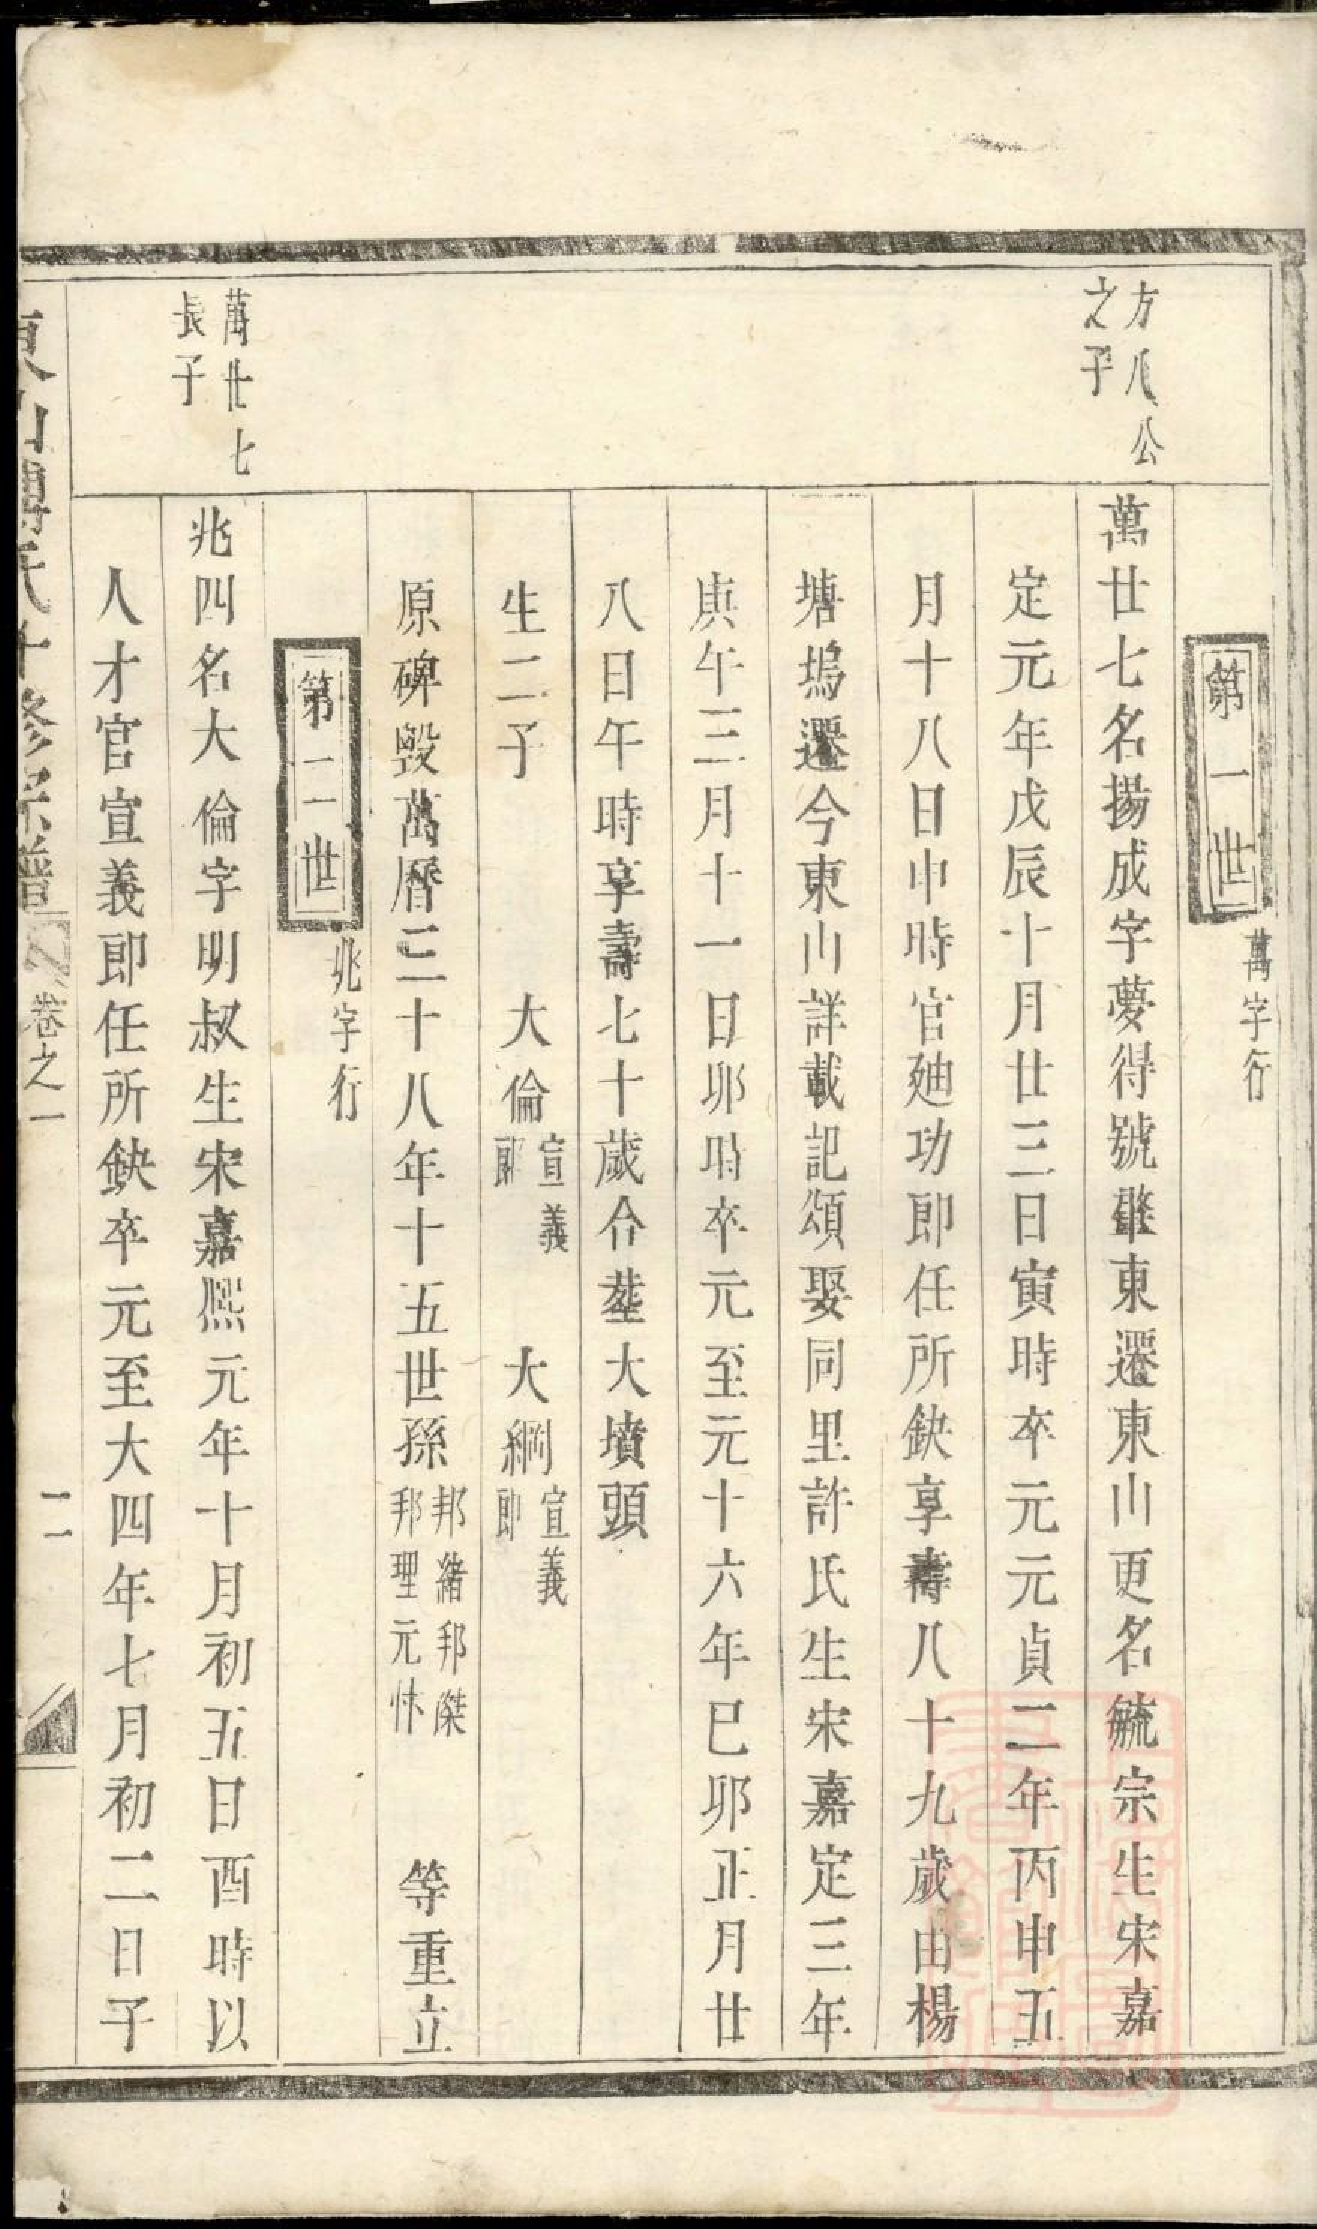 第一世 萬字行
方八公之子
萬廿七名揚成字夢得號肇東遷東山更名毓宗生宋嘉
定元年戊辰十月廿三日寅時卒元元貞二年丙申五
月十八日申時官廸功即任所缺享壽八十九歲由楊
塘塢遷今東山詳載記頌娶同里許氏生宋嘉定三年
庚午三月十一日卯時卒元至元十六年巳卯正月廿
八日午時享壽七十歲合塟大墳頭
生二子 大倫宣義郎 大綱宣義郎
原碑毀萬曆三十八年十五世孫邦緒邦傑邦理元忭等重立
第二世 兆字行
萬廿七長子
兆四名大倫字明叔生宋嘉熙元年十月初五日酉時以
人才官宣義即任所缺卒元至大四年七月初二日子
東山傅氏十修宗譜 卷之一 二